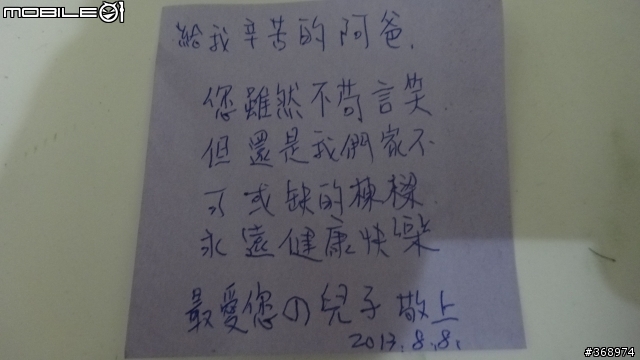 MOBILE01
給我辛苦的阿爸.
您雖然不苟言笑
但還是我們家不
可或缺的棟樑
永遠健康快樂
最愛您の兒子敬上
2013.8.8.
#368974